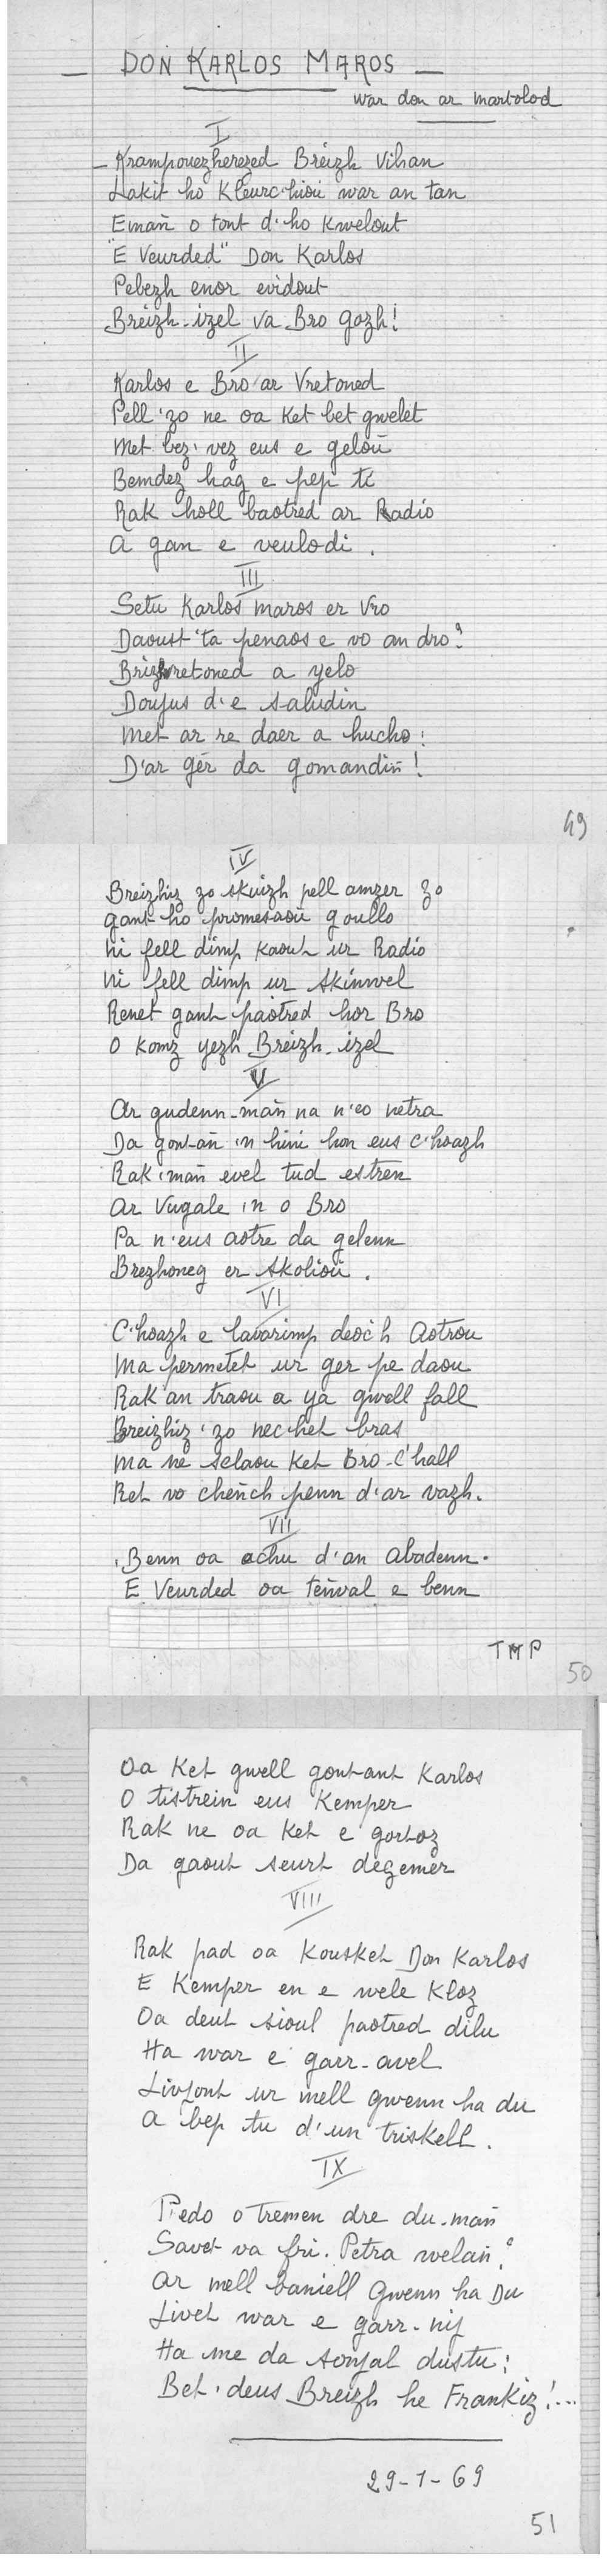 — DON KARLOS MAROS —
war don ar martolod
I
– Krampouezherezed Breizh Vihan
Lakit ho Kleurc'hioù war an tan
Emañ o tont d'ho Kwelout
"E Veurded" Don Karlos
Pebezh enor evidout
Breizh-izel va Bro gozh!
II
Karlos e Bro ar Vretoned
Pell 'zo ne oa Ket bet gwelet
Met bez' vez eus e geloù
Bemdez hag e pep ti
Rak holl baotred ar Radio
A gan e veulodi.
III
Setu Karlos maros er Vro
Daoust 'ta penaos e vo an dro?
Brizhvretoned a yelo
Doujus d'e saludiñ
Met ar re daer a hucho:
D'ar gêr da gomandiñ!
49
IV
Breizhiz zo skuizh pell amzer zo
gant ho promesaoù goullo
Ni fell dimp kaout ur Radio
Ni fell dimp ur skinwel
Renet gant paotred hor Bro
O komz yezh Breizh-izel
V
Ar gudenn-mañ na n'eo netra
Da gont-añ 'n hini hon eus c'hoazh
Rak 'mañ evel tud estren
Ar Vugale 'n o Bro
Pa n'eus aotre da gelenn
Brezhoneg er skolioù.
VI
C'hoazh e lavarimp deoc'h Aotrou
Ma permetet ur ger pe daou
Rak an traou a ya gwell fall
Breizhiz 'zo nec'het bras
Ma ne selaou Ket Bro-C'hall
Ret vo cheñch penn d'ar vazh.
VII
'Benn oa achu d'an Abadenn.
E Veurded oa teñval e benn
TMP
50
Oa Ket gwell gont-ant Karlos
O tistrein eus Kemper
Rak ne oa Ket e gortoz
Da gaout seurt degemer
VIII
Rak pad oa Kousket Don Karlos
E Kemper en e wele Kloz
Oa deut sioul paotred dilu
Ha war e garr-avel
Livjont ur mell gwenn ha du
A bep tu d'un triskell.
IX
Pedo o Tremen dre du-mañ
Savet va fri. Petra welañ?
Ar mell baniell Gwenn ha Du
Livet war e garr-nij
Ha me da soñjal dustu:
Bet 'deus Breizh he Frankiz!...
29-1-69
51